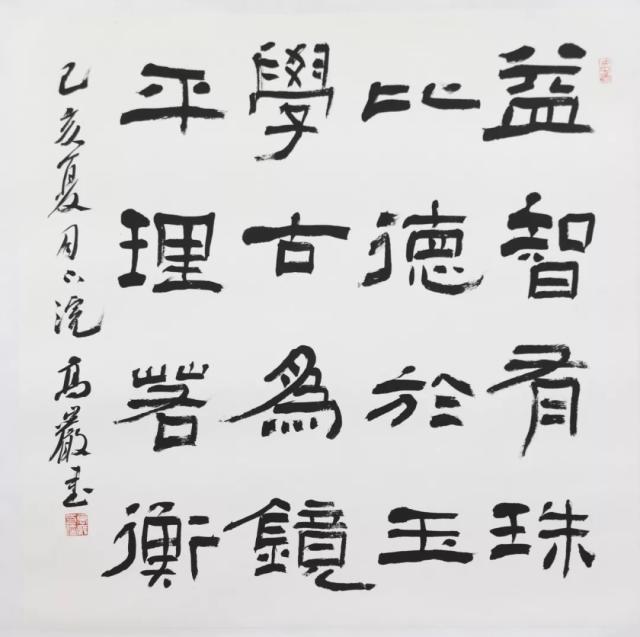 益智有珠
比德於玉
學古為鏡
平理若衡
己亥夏月 高嚴書